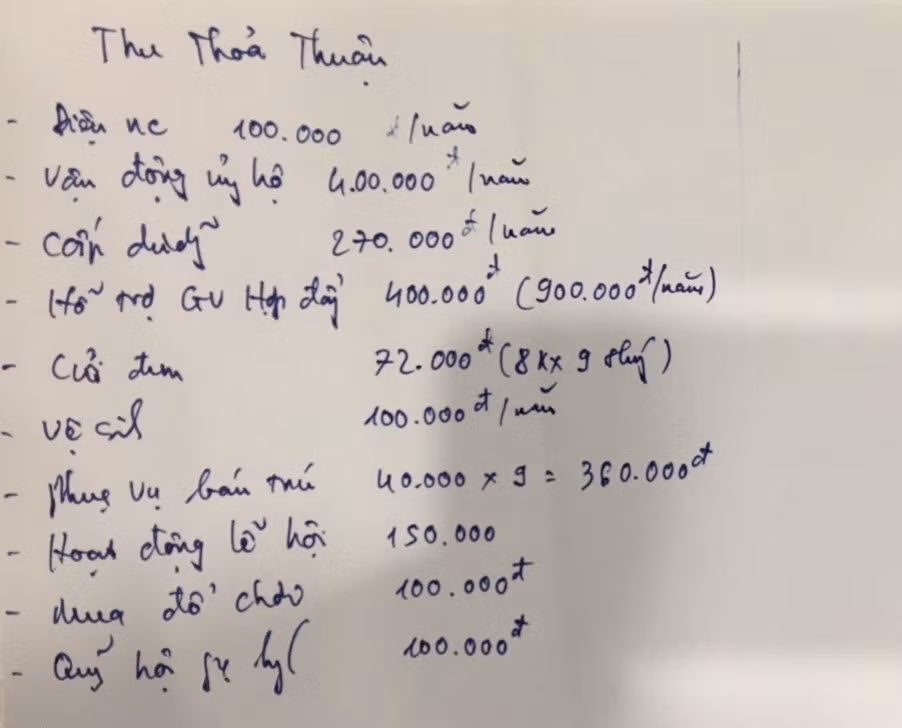 Thu Thoả Thuận
- Điện nc 100.000 đ/năm
- Vận động ủng hộ 400.000đ/năm
- Cấp dưỡng 270.000đ/năm
- Hỗ trợ GV Hợp đồng 400.000đ (900.000đ/năm)
- Củi đun 72.000đ (8k x 9 tháng)
- Vệ sinh 100.000đ/năm
- Phục vụ bán trú 40.000 x 9 = 360.000đ
- Hoạt động lễ hội 150.000
- Mua đồ chơi 100.000đ
- Quỹ hội 100.000đ